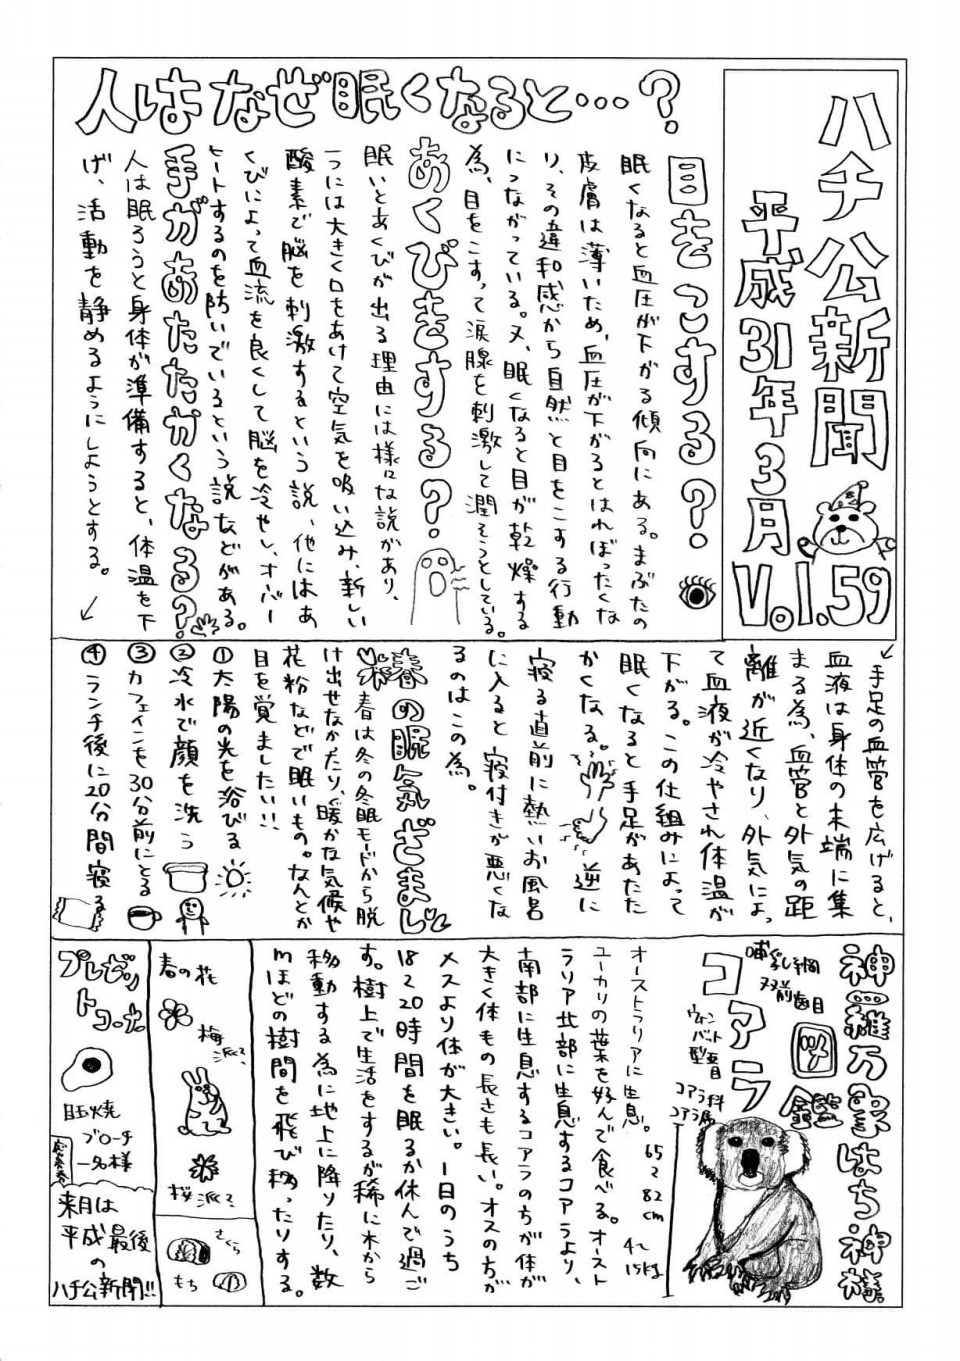 ハチ公新聞
平成31年3月
Vol.59
人はなぜ眠くなると…?
目をこする?
眠くなると血圧が下がる傾向にある。まぶたの
皮膚は薄いため、血圧が下がるとはれぼったくな
り、その違和感から自然と目をこする行動
につながっている。又、眠くなると目が乾燥する
為、目をこすって涙腺を刺激して潤そうとしている。
あくびをする?
眠いとあくびが出る理由には様々な説があり、
一つには大きく口をあけて空気を吸い込み、新しい
酸素で脳を刺激するという説、他にはあ
くびによって血流を良くして脳を冷やし、オーバー
ヒートするのを防いでいるという説などがある。
手があたたかくなる?
人は眠ろうと身体が準備すると、体温を下
げ、活動を静めるようにしようとする。
手足の血管を広げると、
血液は身体の末端に集
まる為、血管と外気の距
離が近くなり、外気によっ
て血液が冷やされ体温が
下がる。この仕組みによって
眠くなると手足があたた
かくなる。逆に
寝る直前に熱いお風呂
に入ると寝付きが悪くな
るのはこの為。
春の眠気ざまし
春は冬の冬眠モードから脱
け出せなかったり、暖かな気候や
花粉などで眠いもの。なんとか
目を覚ましたい!!
①太陽の光を浴びる
②冷水で顔を洗う
③カフェインを30分前にとる
④ランチ後に20分間寝る
神羅万象はち神様
図鑑
哺乳綱
双前歯目
コアラ
ウォン
バット
型亜目
コアラ科
コアラ属
65〜82cm
4〜15kg
オーストラリアに生息。
ユーカリの葉を好んで食べる。オースト
ラリア北部に生息するコアラより、
南部に生息するコアラの方が体が
大きく体もの長さも長い。オスの方が
メスより体が大きい。一日のうち
18〜20時間を眠るか休んで過ご
す。樹上で生活をするが稀に木から
移動する為に地上に降りたり、数
mほどの樹間を飛び移ったりする。
春の花
梅
派?
桜派?
さくら
もち
プレゼン
トコーナー
目玉焼
ブローチ
一名様
来月は
平成最後
の
ハチ公新聞!!